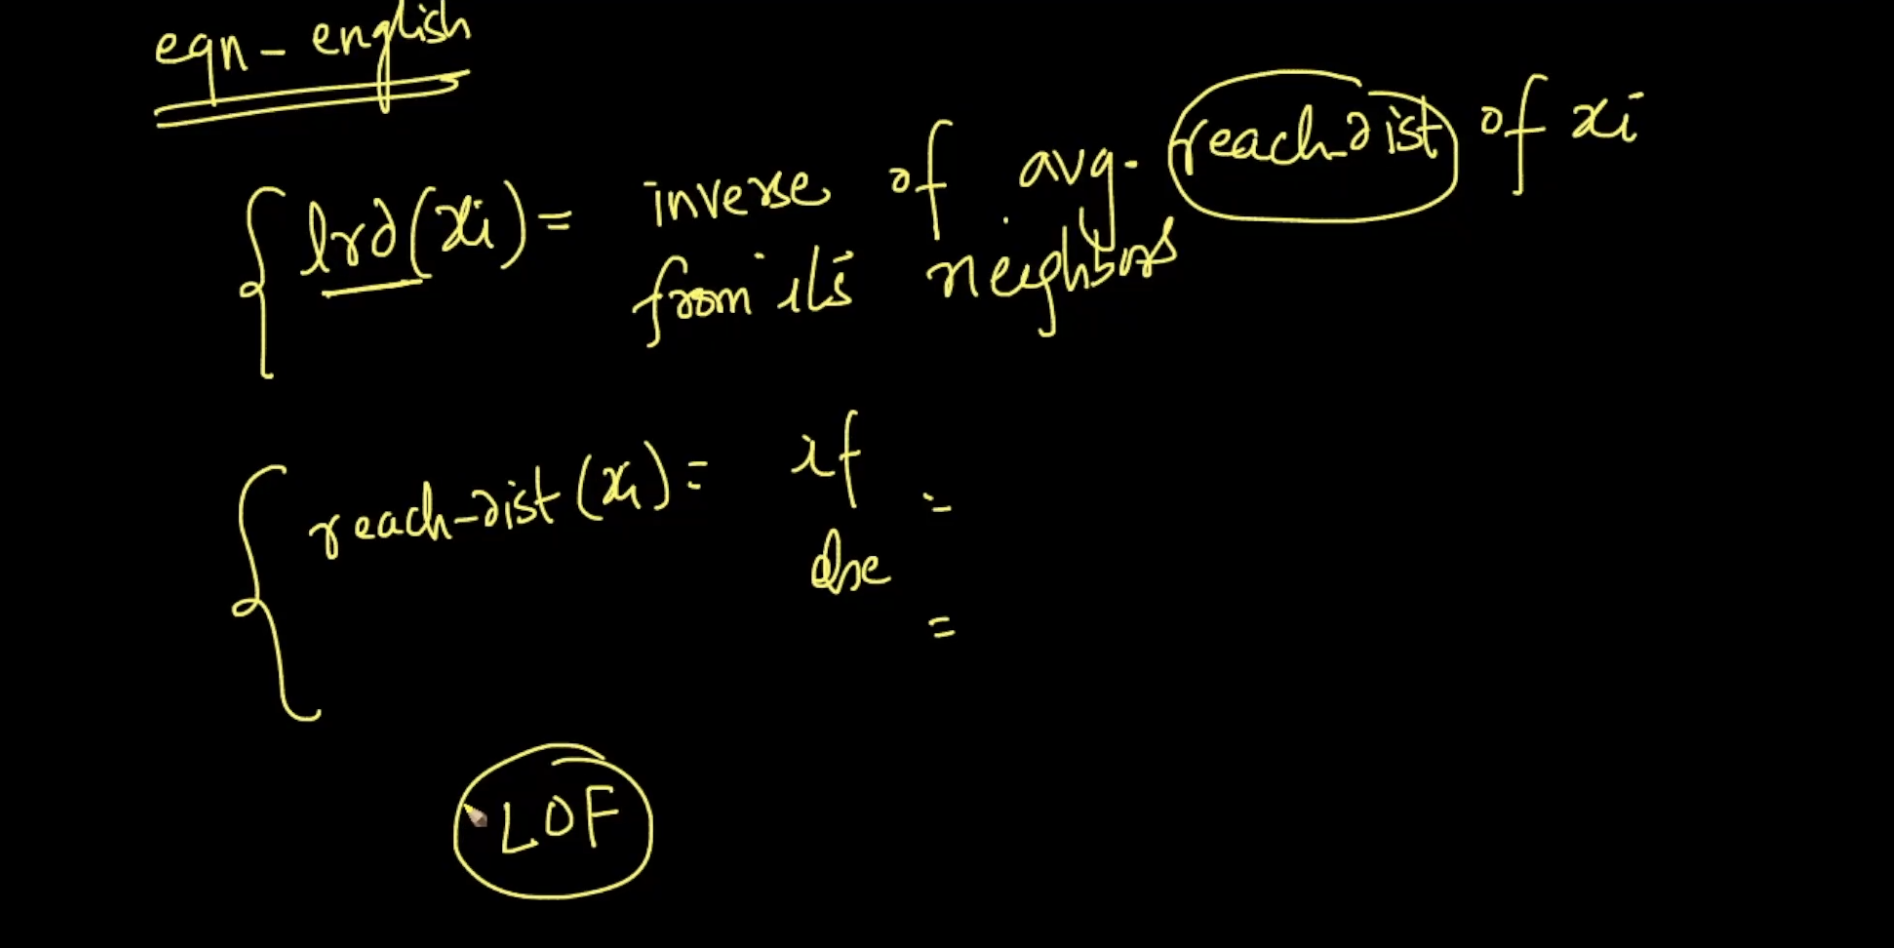 eqn - english
lrd(xi) = inverse of avg. reach-dist of xi
from its neighbors
reach-dist(xi) = if =
else
=
LOF